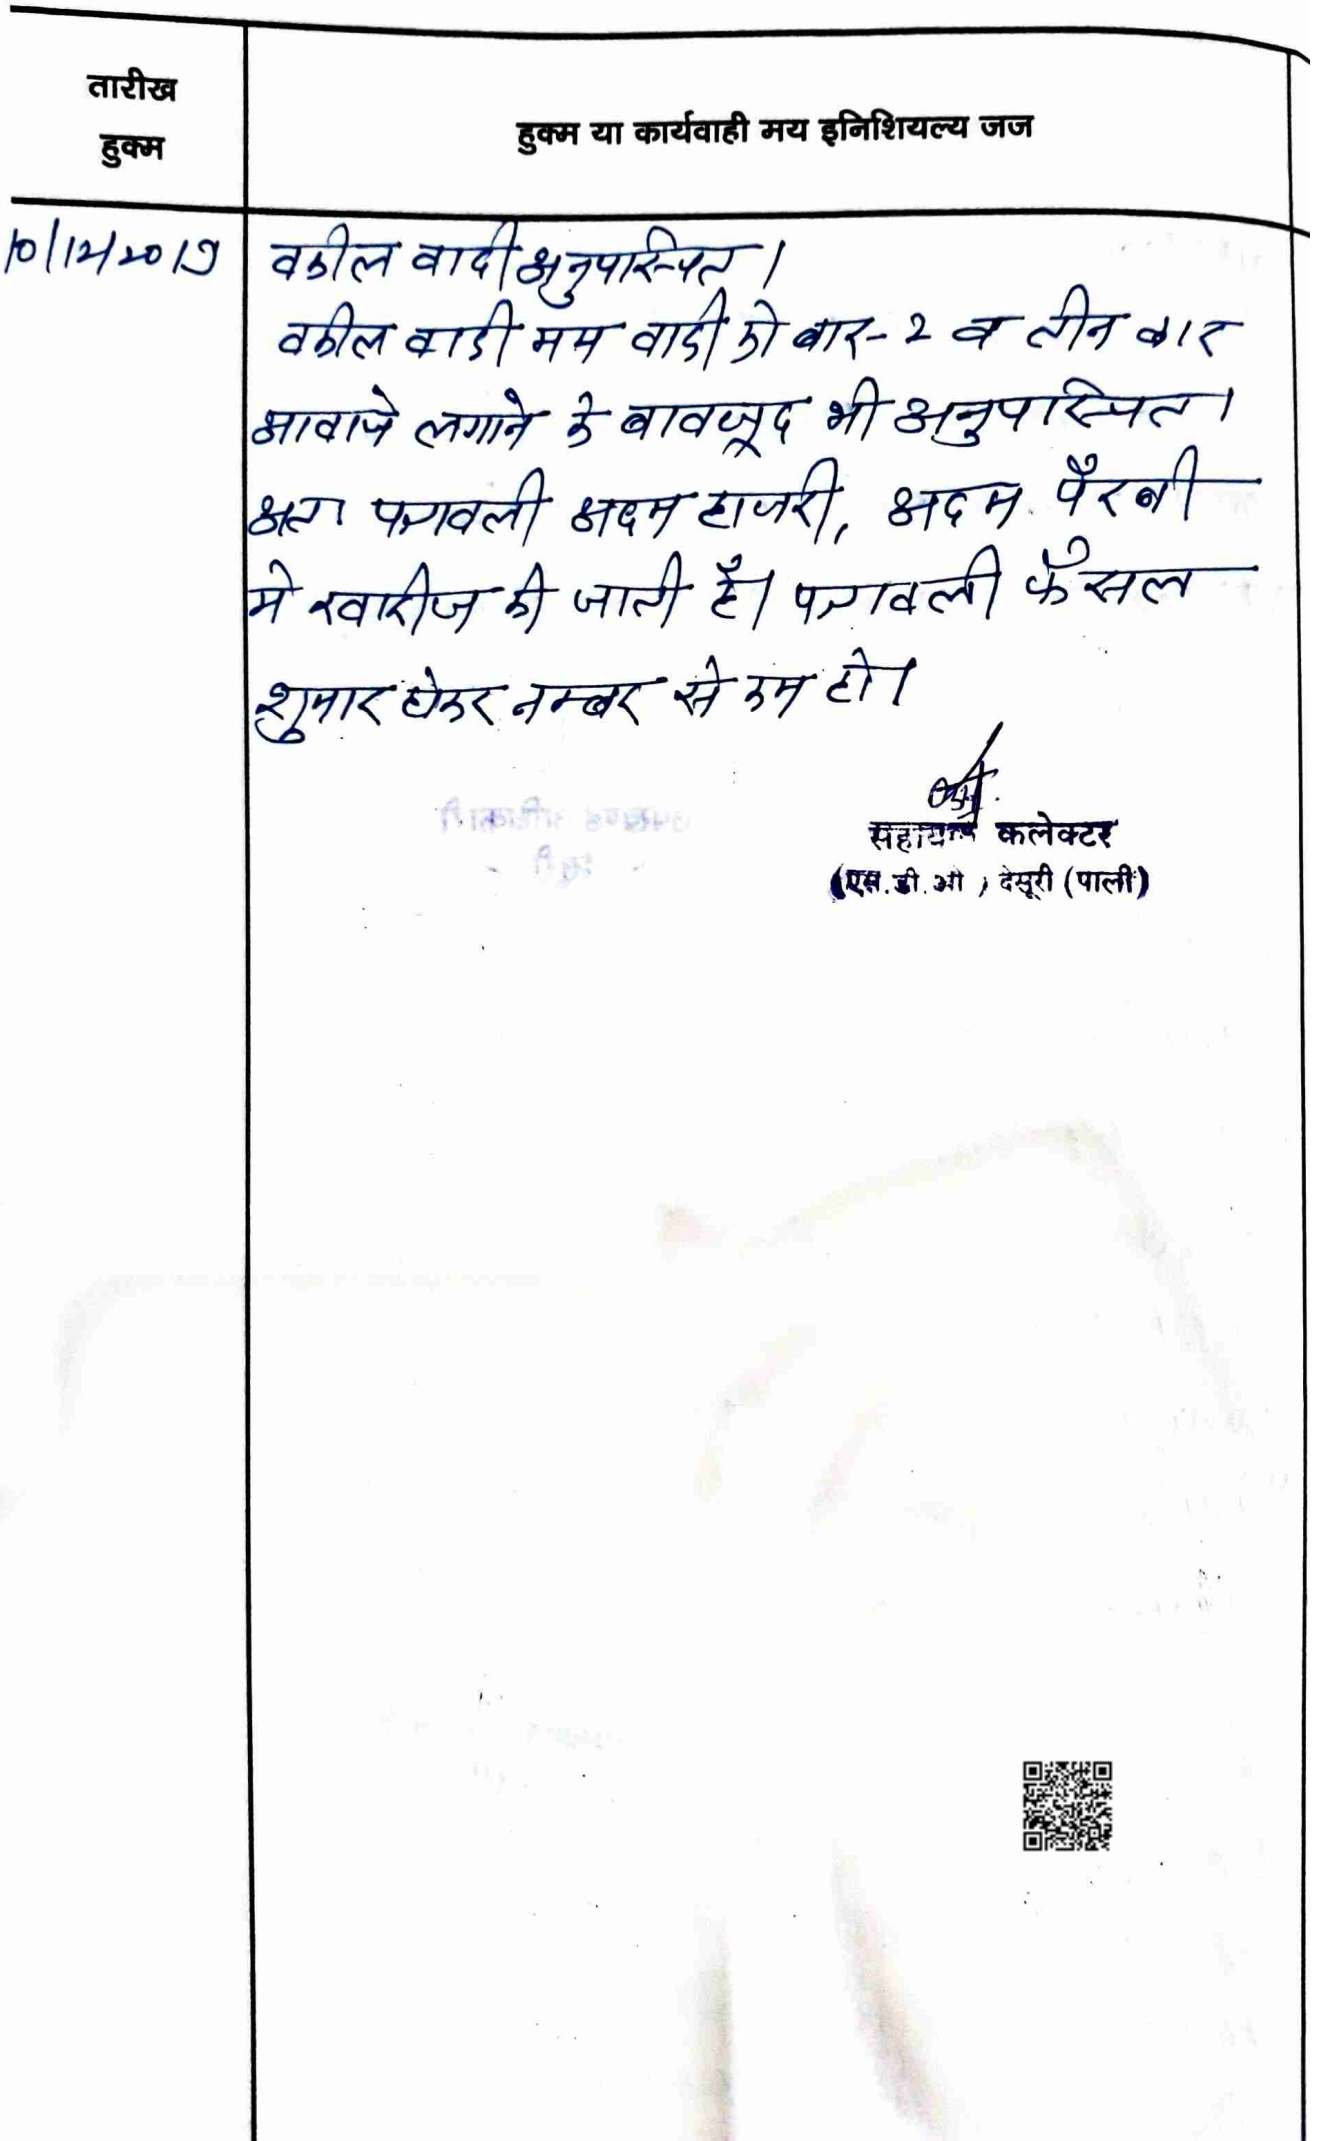 तारीख
हुक्म
हुक्म या कार्यवाही मय इनिशियल्य जज
10/12/2019
वकील वादी अनुपस्थित।
वकील वादी मय वादी को बार-2 व तीन बार
आवाजे लगाने के बावजूद भी अनुपस्थित।
अतः पत्रावली अदम हाजरी, अदम पैरवी
मे खारीज की जाती है। पत्रावली फैसल
शुमार होकर नम्बर से कम हो।
सहायक कलेक्टर
(एस.डी.ओ) देसूरी (पाली)